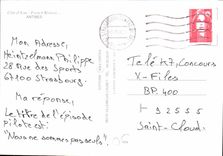 Côte d'Azur - French Riviera
ANTIBES
Mon Adresse,
Heintzelmann Philippe
28 Rue des Sports
67200 Strasbourg.
Ma réponse,
Le titre de l'épisode
pilote est:
"Nous ne sommes pas seuls".
Télé K7, Concours
X-Files
BP. 400
92555
Saint-Cloud.